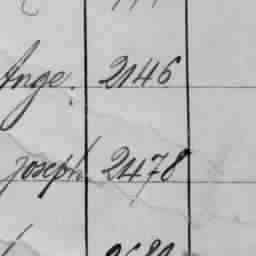 Ange. 2146
Joseph. 2478